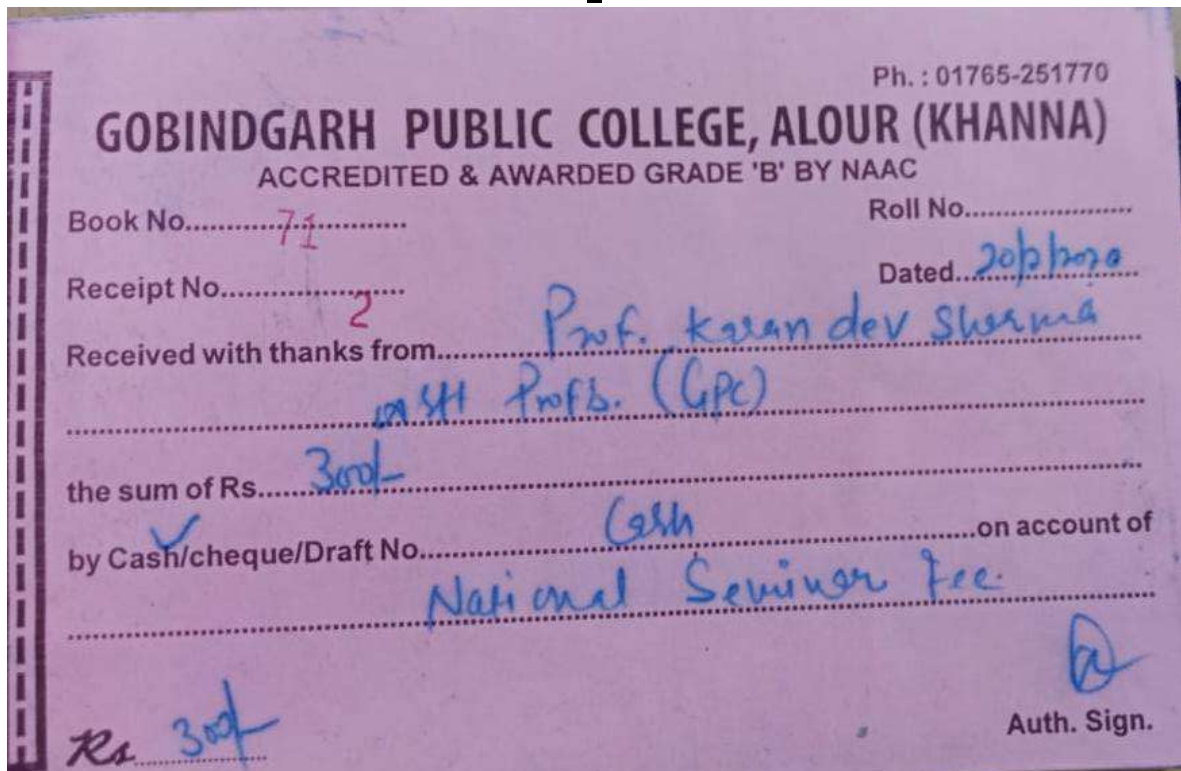 Ph. : 01765-251770
GOBINDGARH PUBLIC COLLEGE, ALOUR (KHANNA)
ACCREDITED & AWARDED GRADE 'B' BY NAAC
Book No. 71 Roll No.
Receipt No. 2 Dated. 20/2/2020
Received with thanks from. Prof. Karan dev Sharma
(GPC)
the sum of Rs. 300/-
by Cash/cheque/Draft No. Cash on account of
National Seminar Fee.
Rs. 300/- Auth. Sign.